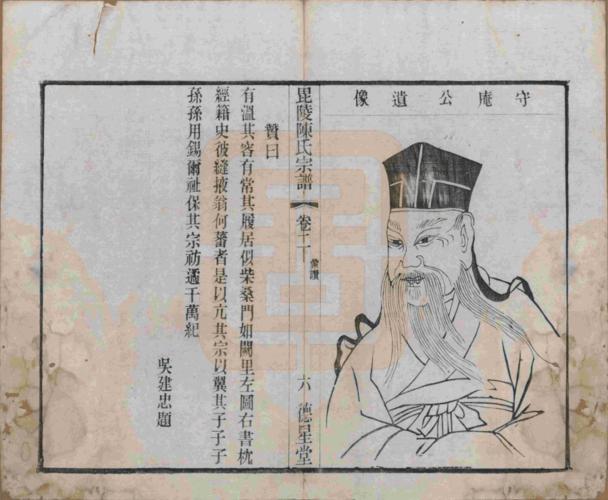 守庵公遺像
毘陵陳氏宗譜
卷二十
像讚
六
德星堂
贊曰
有溫其容有常其履居似柴桑門如闕里左圖右書枕
經籍史彼縫掖翁何蓄者是以亢其宗以翼其子子子
孫孫用錫爾祉保其宗祊遹千萬紀
吳建忠題